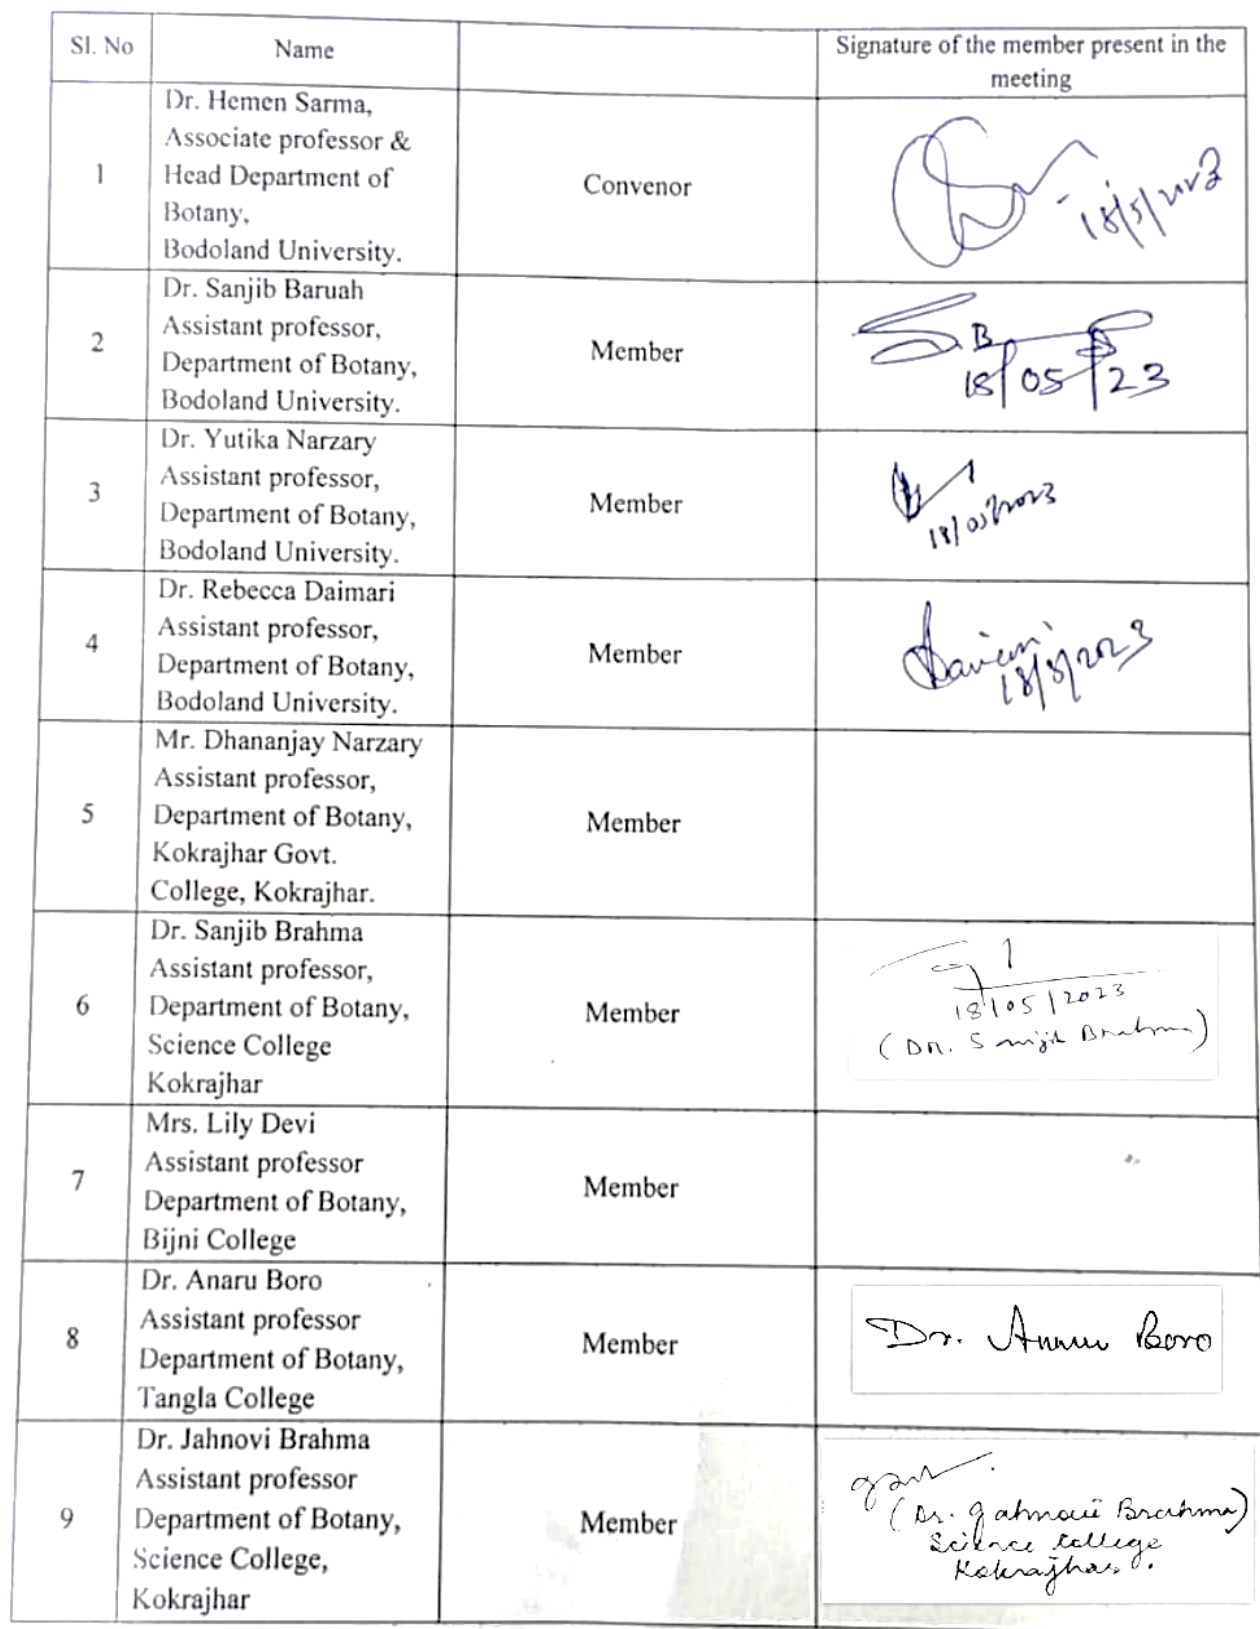 Sl. No
Name
Signature of the member present in the
meeting
1
Dr. Hemen Sarma,
Associate professor &
Head Department of
Botany,
Bodoland University.
Convenor
18/5/2023
2
Dr. Sanjib Baruah
Assistant professor,
Department of Botany,
Bodoland University.
Member
18/05/23
3
Dr. Yutika Narzary
Assistant professor,
Department of Botany,
Bodoland University.
Member
18/05/2023
4
Dr. Rebecca Daimari
Assistant professor,
Department of Botany,
Bodoland University.
Member
18/5/2023
5
Mr. Dhananjay Narzary
Assistant professor,
Department of Botany,
Kokrajhar Govt.
College, Kokrajhar.
Member
6
Dr. Sanjib Brahma
Assistant professor,
Department of Botany,
Science College
Kokrajhar
Member
18/05/2023
(Dr. Sanjib Brahma)
7
Mrs. Lily Devi
Assistant professor
Department of Botany,
Bijni College
Member
8
Dr. Anaru Boro
Assistant professor
Department of Botany,
Tangla College
Member
Dr. Anaru Boro
9
Dr. Jahnovi Brahma
Assistant professor
Department of Botany,
Science College,
Kokrajhar
Member
(Dr. Jahnovi Brahma)
Science College
Kokrajhar.